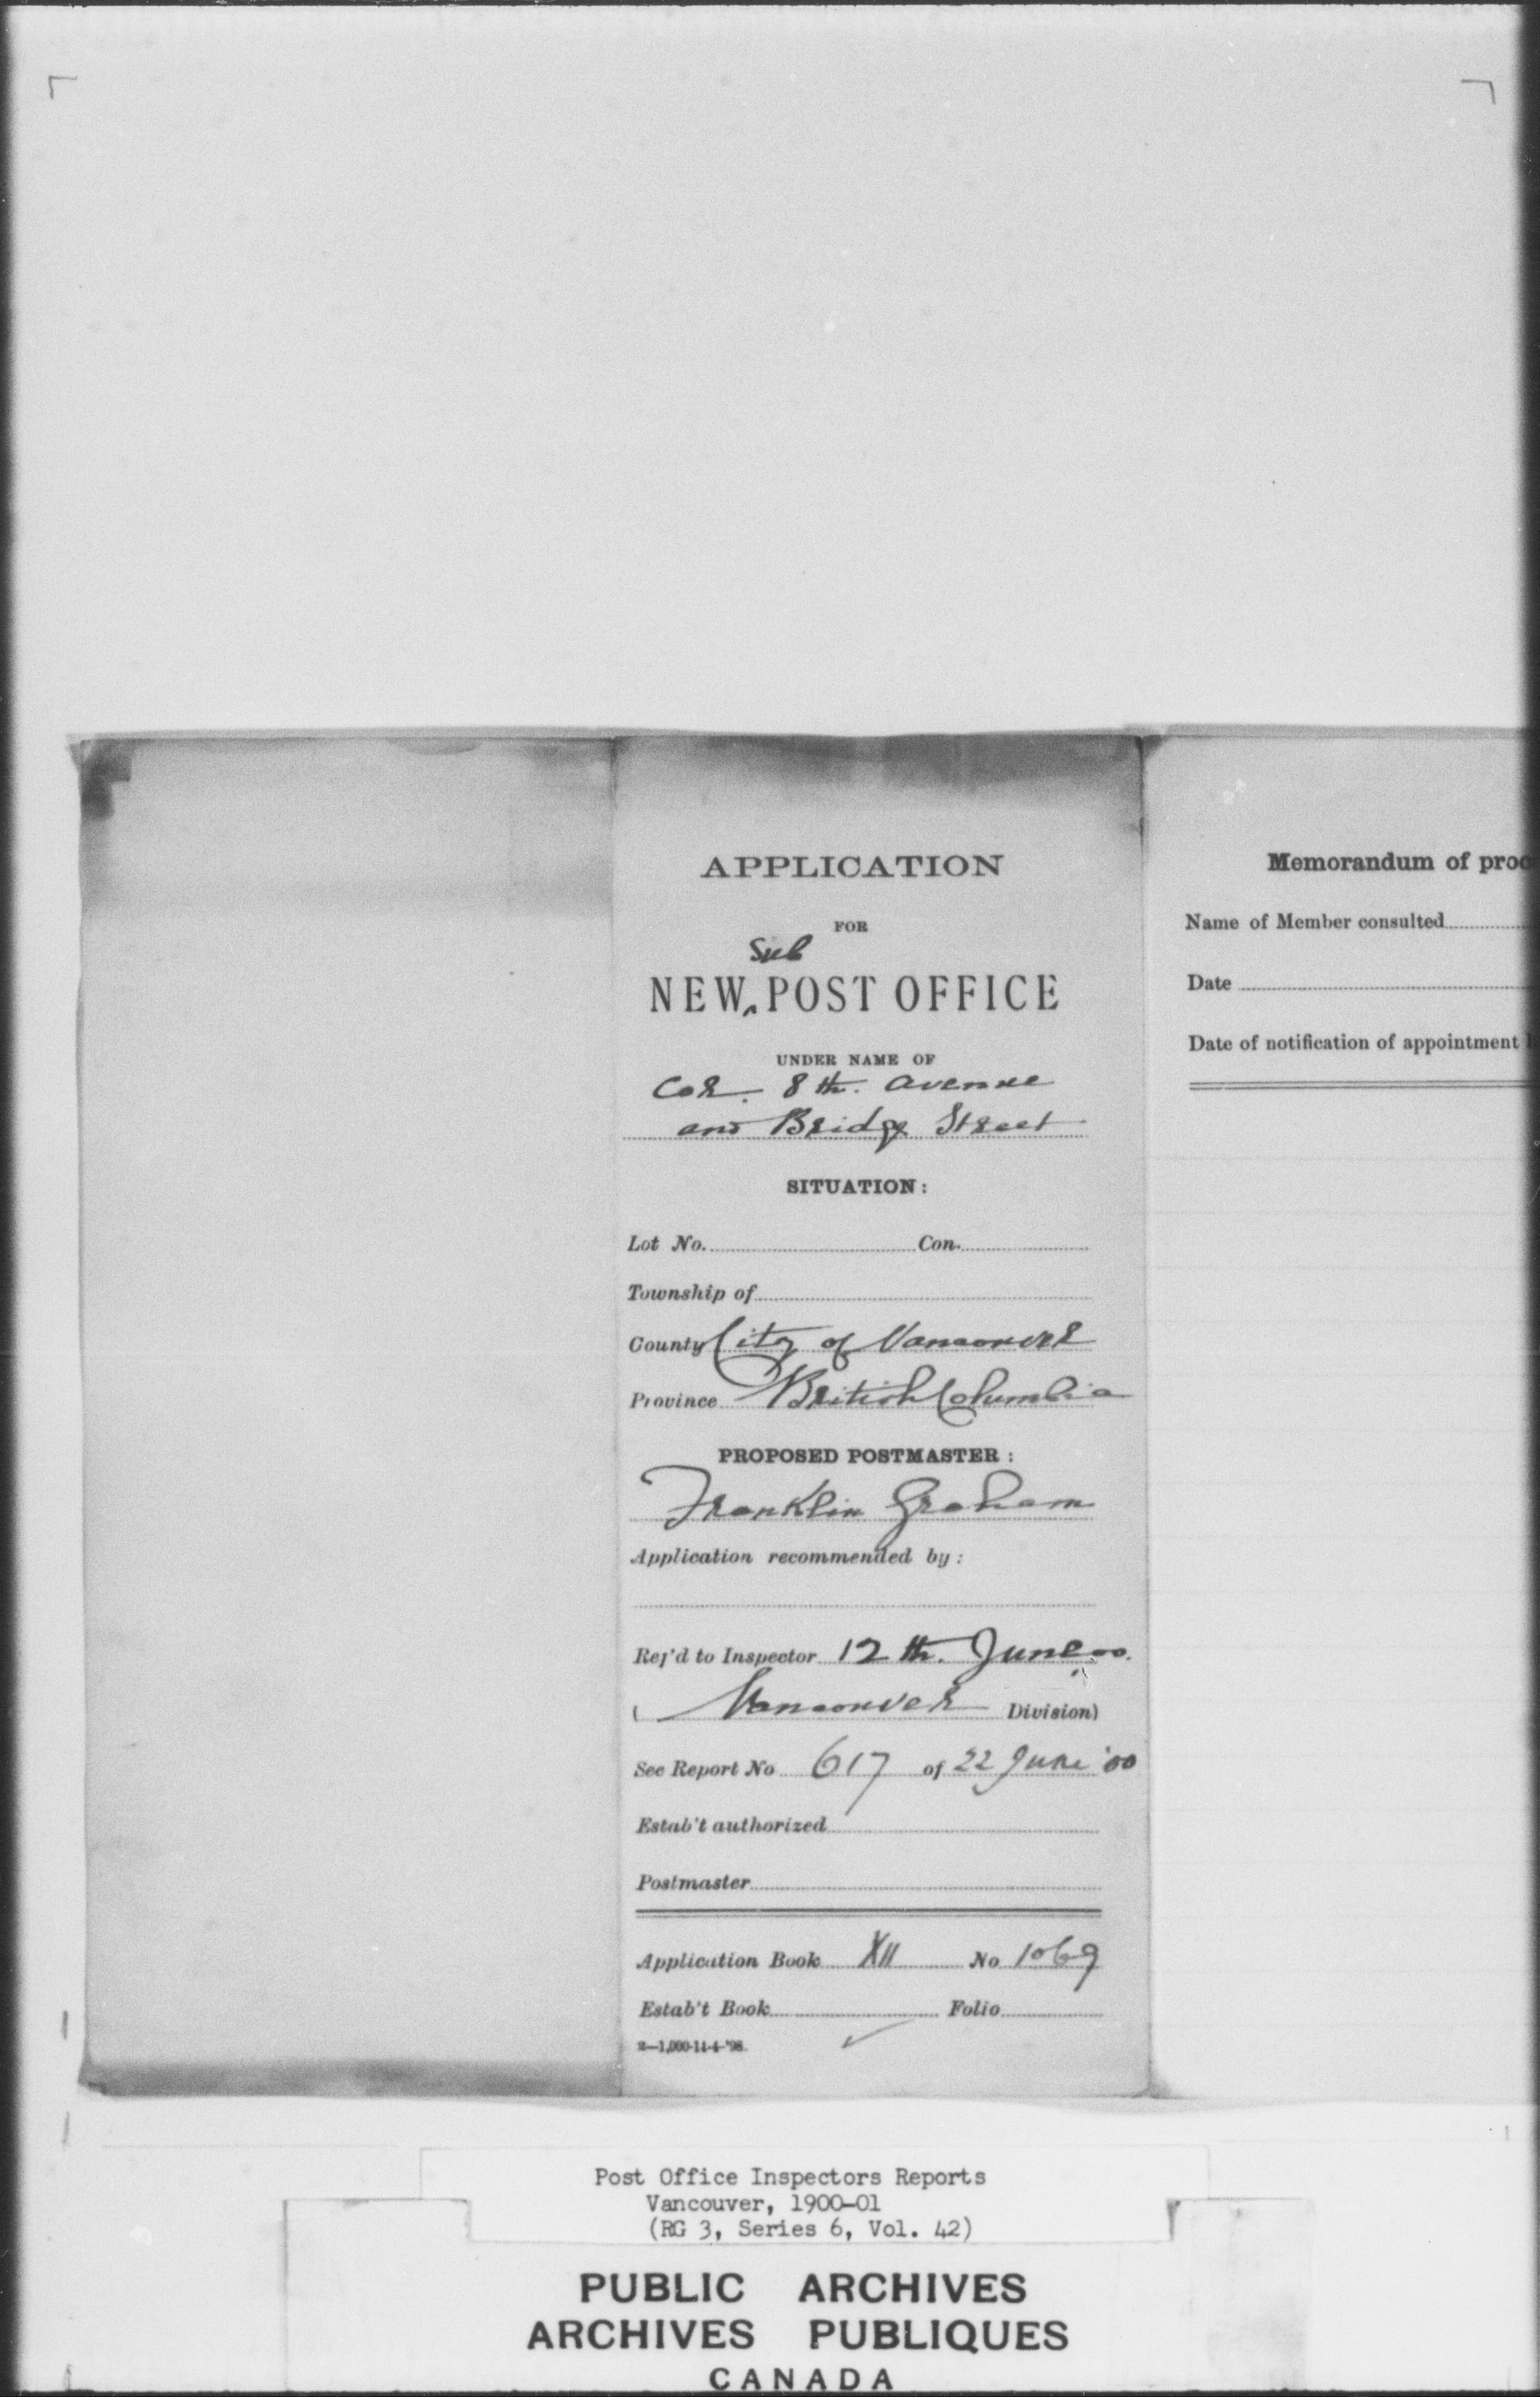 APPLICATION
FOR
Sub
NEW ^ POST OFFICE
UNDER NAME OF
Cor. 8th. Avenue
and Bridge Street
SITUATION:
Lot No. Con.
Township of
County City of Vancouver
Province British Columbia
PROPOSED POSTMASTER:
Franklin Graham
Application recommended by:
Ref'd to Inspector 12th. June 00.
( Vancouver Division)
See Report No 617 of 22 June '00
Estab't authorized
Postmaster
Application Book XII No 1069
Estab't Book Folio
2—1,000-14-4-'98.
Memorandum of proc
Name of Member consulted
Date
Date of notification of appointment
Post Office Inspectors Reports
Vancouver, 1900-01
(RG 3, Series 6, Vol. 42)
PUBLIC ARCHIVES
ARCHIVES PUBLIQUES
CANADA